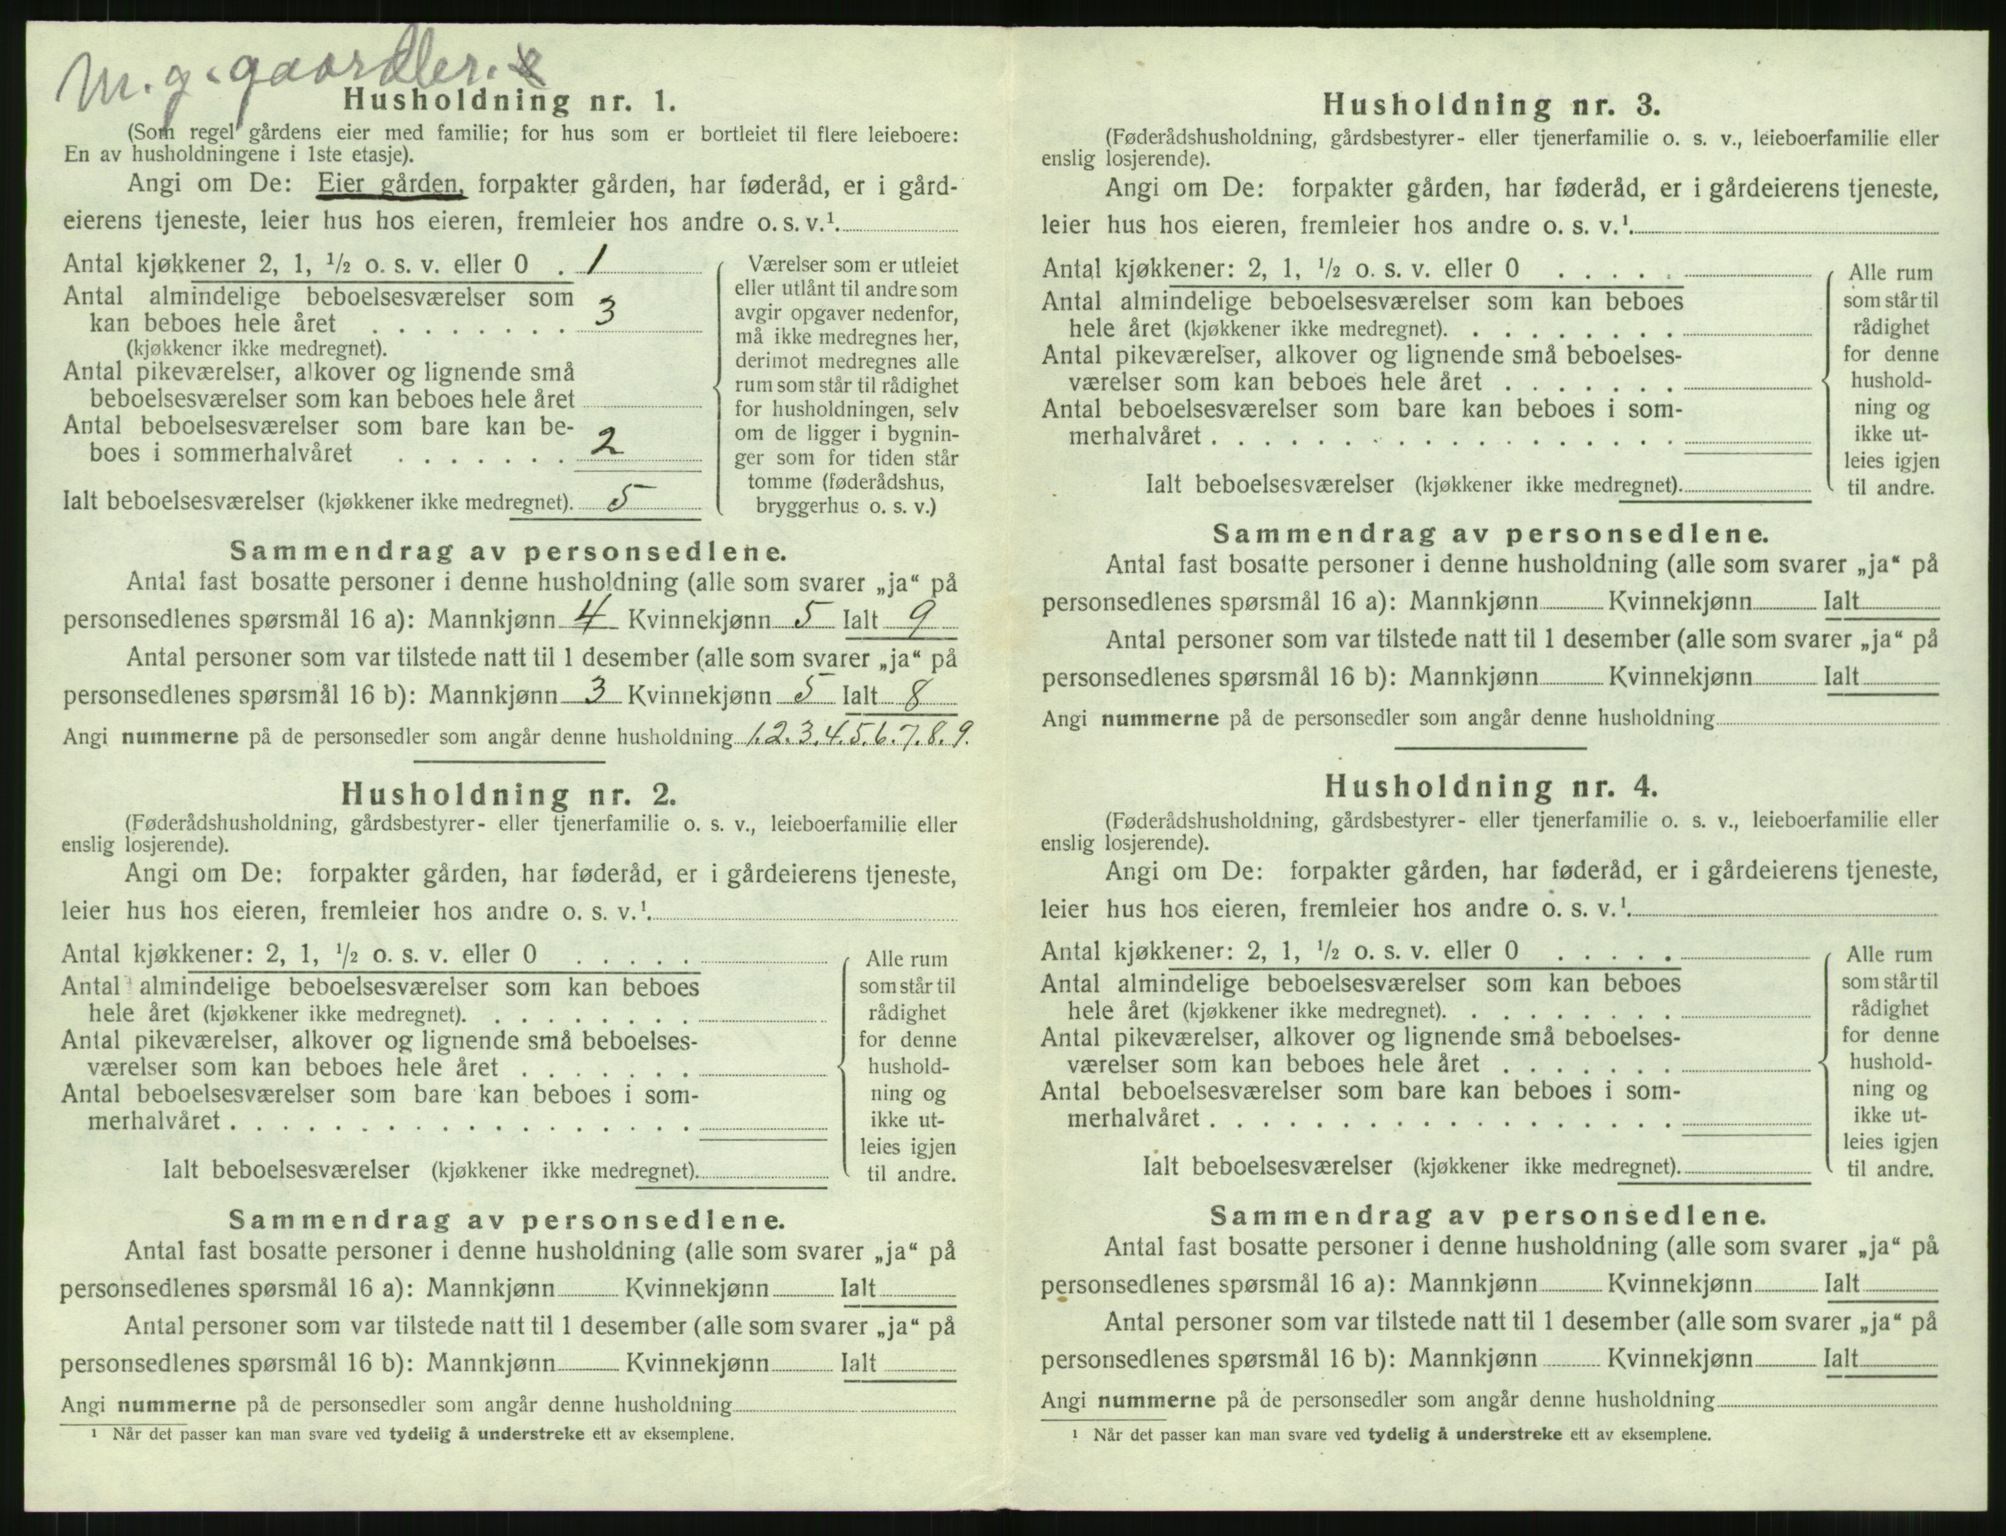 M. g. gaardbr.
Husholdning nr. 1.
(Som regel gårdens eier med familie; for hus som er bortleiet til flere leieboere:
En av husholdningene i 1ste etasje).
Angi om De: Eier gården, forpakter gården, har føderåd, er i gård-
eierens tjeneste, leier hus hos eieren, fremleier hos andre o. s. v.¹.
Antal kjøkkener 2, 1, ½ o. s. v. eller 0 . 1
Antal almindelige beboelsesværelser som
kan beboes hele året . . . . . . . . 3
(kjøkkener ikke medregnet).
Antal pikeværelser, alkover og lignende små
beboelsesværelser som kan beboes hele året
Antal beboelsesværelser som bare kan be-
boes i sommerhalvåret . . . . . . . 2
Ialt beboelsesværelser (kjøkkener ikke medregnet). 5
Værelser som er utleiet
eller utlånt til andre som
avgir opgaver nedenfor,
må ikke medregnes her,
derimot medregnes alle
rum som står til rådighet
for husholdningen, selv
om de ligger i bygnin-
ger som for tiden står
tomme (føderådshus,
bryggerhus o. s. v.)
Sammendrag av personsedlene.
Antal fast bosatte personer i denne husholdning (alle som svarer „ja“ på
personsedlenes spørsmål 16 a): Mannkjønn 4 Kvinnekjønn 5 Ialt 9
Antal personer som var tilstede natt til 1 desember (alle som svarer „ja“ på
personsedlenes spørsmål 16 b): Mannkjønn 3 Kvinnekjønn 5 Ialt 8
Angi nummerne på de personsedler som angår denne husholdning 1.2.3.4.5.6.7.8.9.
Husholdning nr. 2.
(Føderådshusholdning, gårdsbestyrer- eller tjenerfamilie o. s. v., leieboerfamilie eller
enslig losjerende).
Angi om De: forpakter gården, har føderåd, er i gårdeierens tjeneste,
leier hus hos eieren, fremleier hos andre o. s. v.¹.
Antal kjøkkener: 2, 1, ½ o. s. v. eller 0 . . . . .
Antal almindelige beboelsesværelser som kan beboes
hele året (kjøkkener ikke medregnet). . . . . . . . .
Antal pikeværelser, alkover og lignende små beboelses-
værelser som kan beboes hele året . . . . . . .
Antal beboelsesværelser som bare kan beboes i som-
merhalvåret . . . . . . . . . . . . . . . . . .
Ialt beboelsesværelser (kjøkkener ikke medregnet).
Alle rum
som står til
rådighet
for denne
hushold-
ning og
ikke ut-
leies igjen
til andre.
Sammendrag av personsedlene.
Antal fast bosatte personer i denne husholdning (alle som svarer „ja“ på
personsedlenes spørsmål 16 a): Mannkjønn Kvinnekjønn Ialt
Antal personer som var tilstede natt til 1 desember (alle som svarer „ja“ på
personsedlenes spørsmål 16 b): Mannkjønn Kvinnekjønn Ialt
Angi nummerne på de personsedler som angår denne husholdning
¹ Når det passer kan man svare ved tydelig å understreke ett av eksemplene.
Husholdning nr. 3.
(Føderådshusholdning, gårdsbestyrer- eller tjenerfamilie o. s. v., leieboerfamilie eller
enslig losjerende).
Angi om De: forpakter gården, har føderåd, er i gårdeierens tjeneste,
leier hus hos eieren, fremleier hos andre o. s. v.¹.
Antal kjøkkener: 2, 1, ½ o. s. v. eller 0 . . . . .
Antal almindelige beboelsesværelser som kan beboes
hele året (kjøkkener ikke medregnet). . . . . . . . .
Antal pikeværelser, alkover og lignende små beboelses-
værelser som kan beboes hele året . . . . . . .
Antal beboelsesværelser som bare kan beboes i som-
merhalvåret . . . . . . . . . . . . . . . . . .
Ialt beboelsesværelser (kjøkkener ikke medregnet).
Alle rum
som står til
rådighet
for denne
hushold-
ning og
ikke ut-
leies igjen
til andre.
Sammendrag av personsedlene.
Antal fast bosatte personer i denne husholdning (alle som svarer „ja“ på
personsedlenes spørsmål 16 a): Mannkjønn Kvinnekjønn Ialt
Antal personer som var tilstede natt til 1 desember (alle som svarer „ja“ på
personsedlenes spørsmål 16 b): Mannkjønn Kvinnekjønn Ialt
Angi nummerne på de personsedler som angår denne husholdning
Husholdning nr. 4.
(Føderådshusholdning, gårdsbestyrer- eller tjenerfamilie o. s. v., leieboerfamilie eller
enslig losjerende).
Angi om De: forpakter gården, har føderåd, er i gårdeierens tjeneste,
leier hus hos eieren, fremleier hos andre o. s. v.¹.
Antal kjøkkener: 2, 1, ½ o. s. v. eller 0 . . . . .
Antal almindelige beboelsesværelser som kan beboes
hele året (kjøkkener ikke medregnet). . . . . . . . .
Antal pikeværelser, alkover og lignende små beboelses-
værelser som kan beboes hele året . . . . . . .
Antal beboelsesværelser som bare kan beboes i som-
merhalvåret . . . . . . . . . . . . . . . . . .
Ialt beboelsesværelser (kjøkkener ikke medregnet).
Alle rum
som står til
rådighet
for denne
hushold-
ning og
ikke ut-
leies igjen
til andre.
Sammendrag av personsedlene.
Antal fast bosatte personer i denne husholdning (alle som svarer „ja“ på
personsedlenes spørsmål 16 a): Mannkjønn Kvinnekjønn Ialt
Antal personer som var tilstede natt til 1 desember (alle som svarer „ja“ på
personsedlenes spørsmål 16 b): Mannkjønn Kvinnekjønn Ialt
Angi nummerne på de personsedler som angår denne husholdning
¹ Når det passer kan man svare ved tydelig å understreke ett av eksemplene.